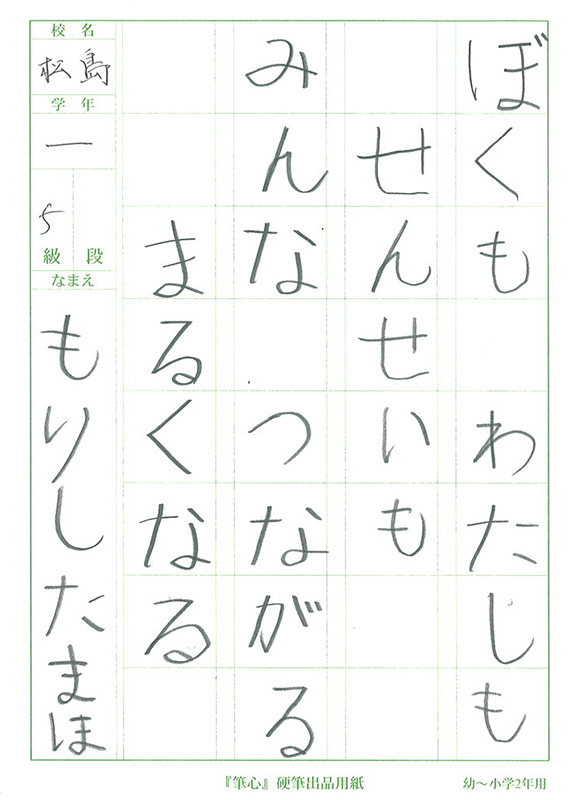 ぼくも わたしも
せんせいも
みんな つながる
まるくなる
校名
松島
学年
一
5
級 段
なまえ
もりしたまほ
『筆心』硬筆出品用紙
幼～小学2年用